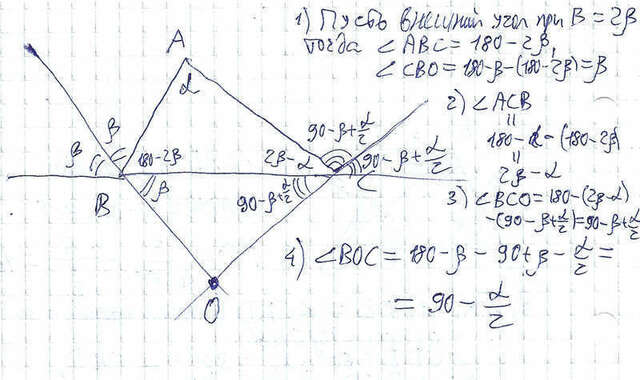 1) Пусть внешний угол при B = 2β
тогда ∠ABC = 180 - 2β,
∠CBO = 180 - β - (180 - 2β) = β
2) ∠ACB
=
180 - α - (180 - 2β)
=
2β - α
3) ∠BCO = 180 - (2β - α)
- (90 - β + α/2) = 90 - β + α/2
4) ∠BOC = 180 - β - 90 + β - α/2 =
= 90 - α/2
A
α
β
β
180 - 2β
2β - α
90 - β + α/2
90 - β + α/2
B
β
90 - β + α/2
C
O